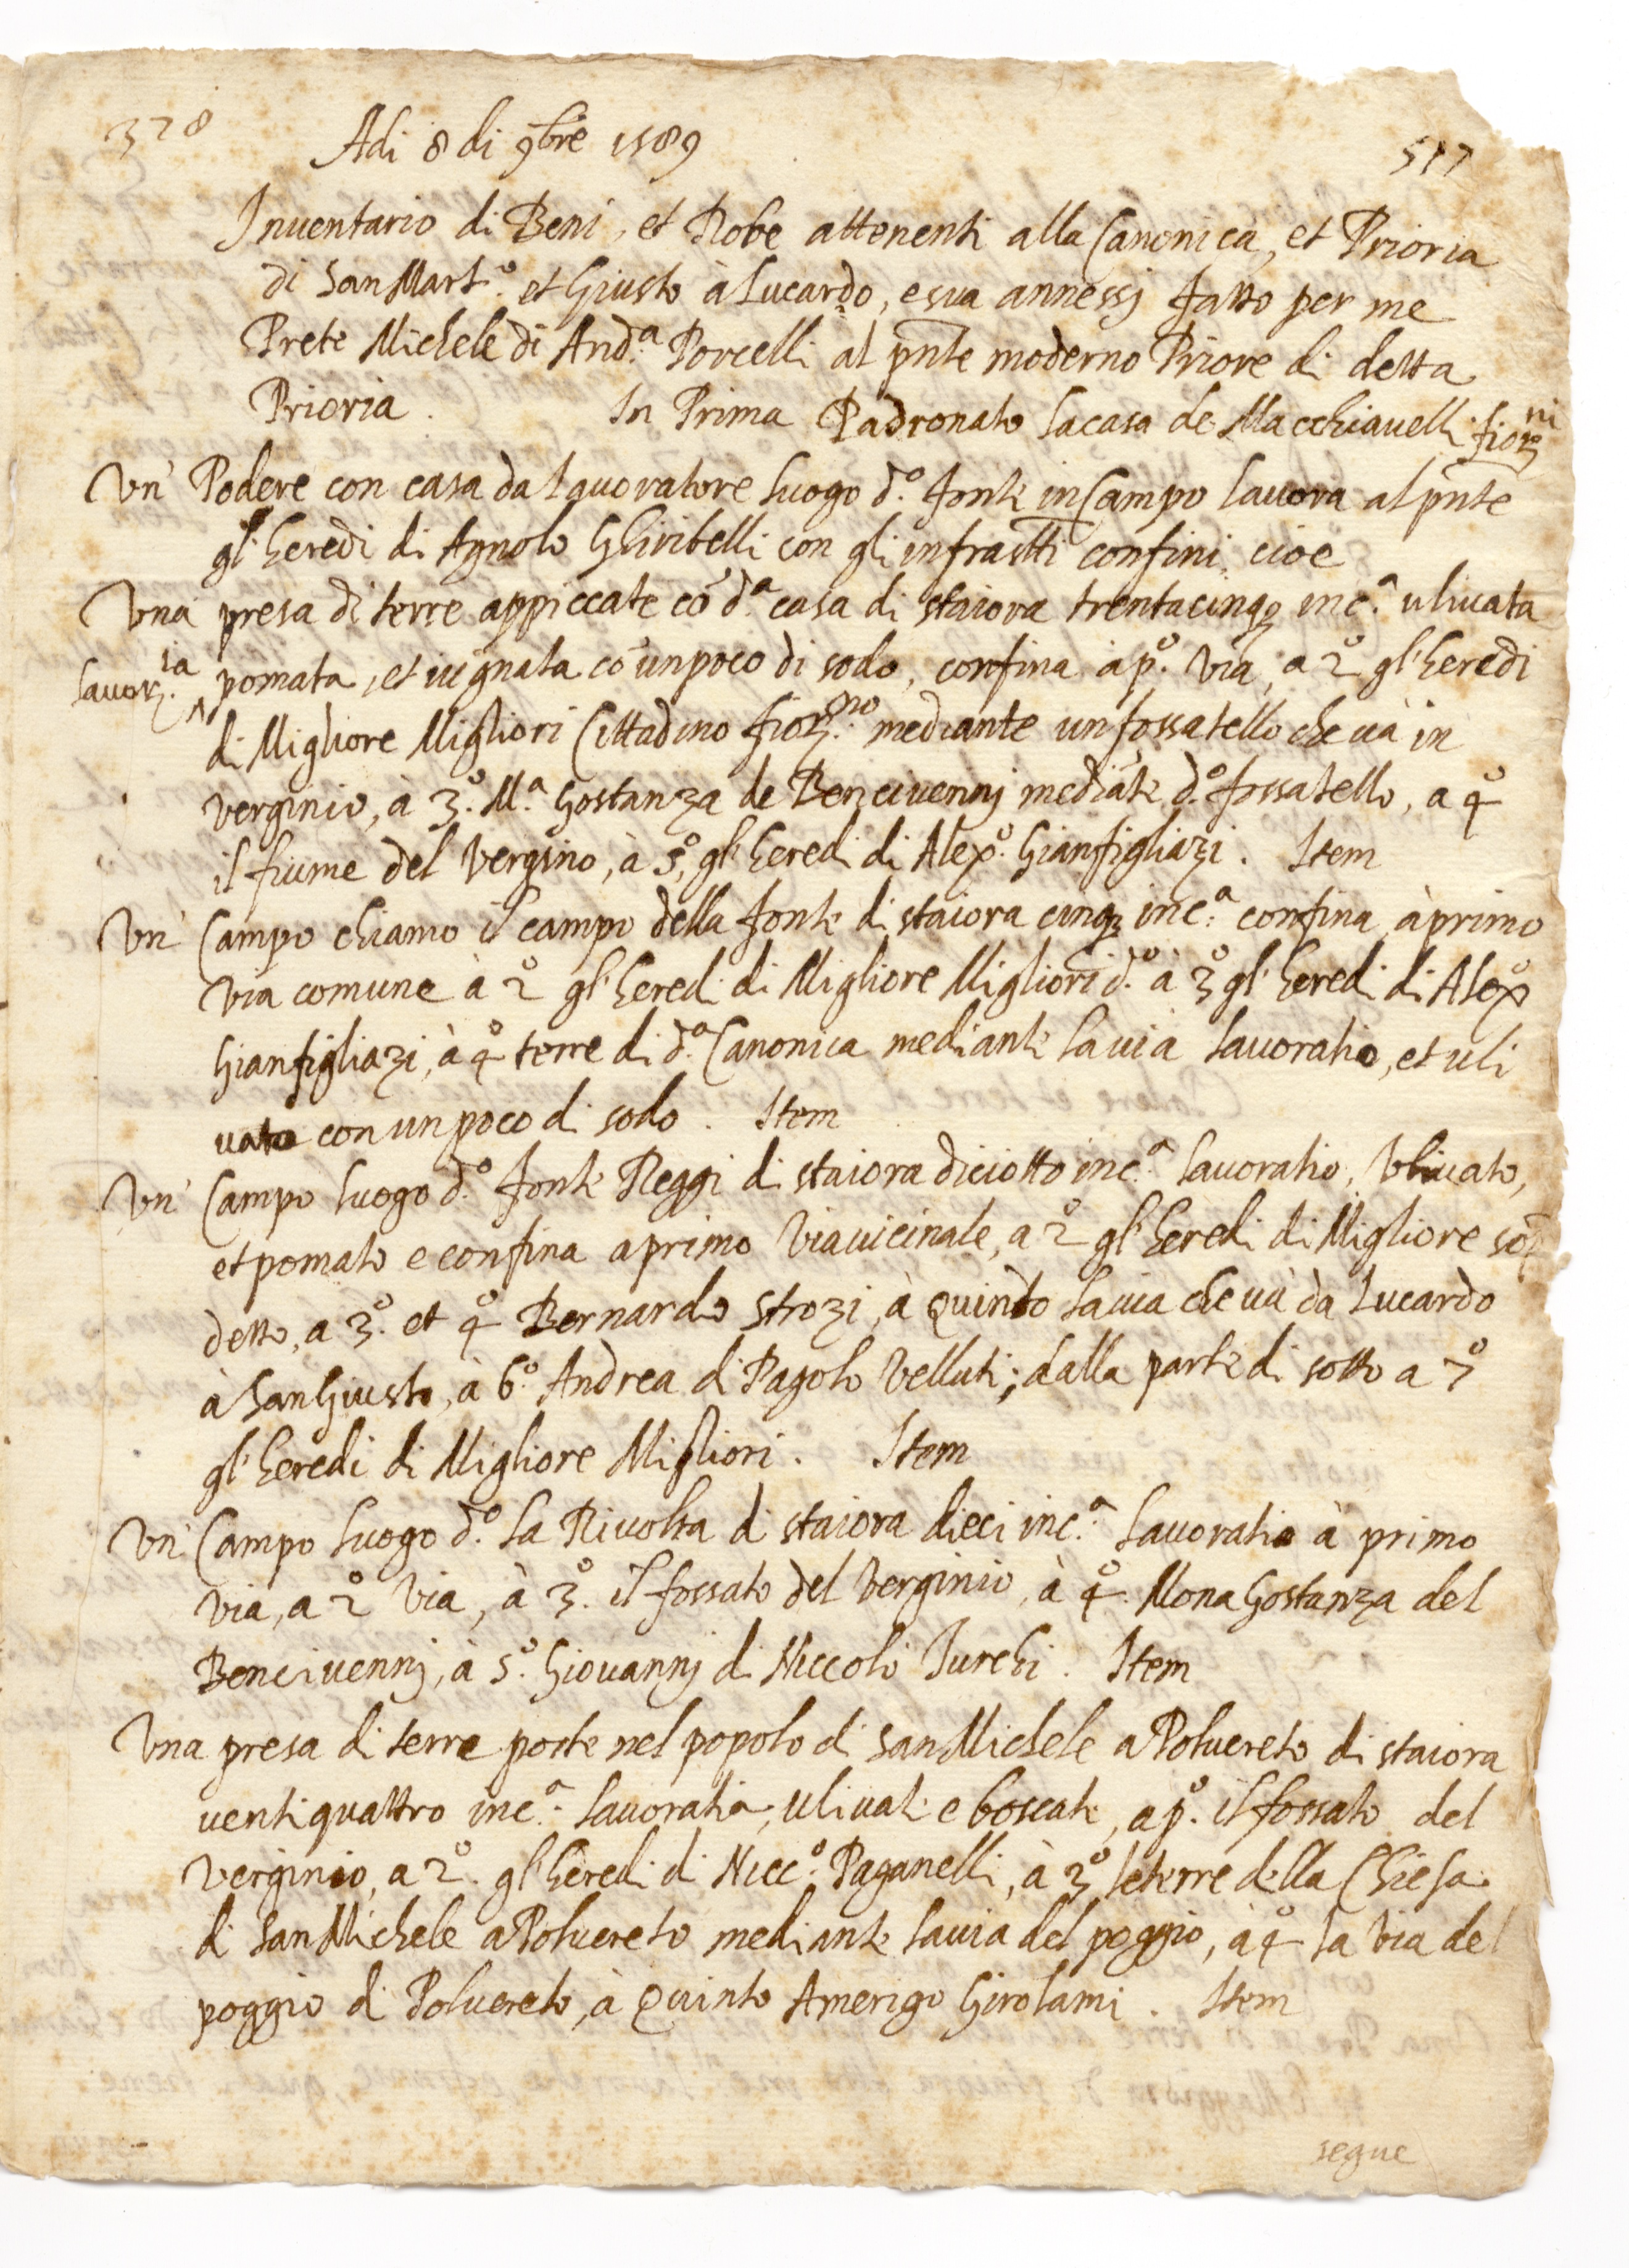 328
Adi 8 di 9bre 1589
517
Inuentario di Beni, et Robe attenenti alla Canonica, et Prioria
di San Mart.º et Giusto à Lucardo, e sua annessi fatto per me
Prete Michele di And.ª Porcelli al pnte moderno Priore di detta
Prioria. In Prima Padronato la casa de Macchiauelli fiorni
Un' Podere con casa da lauoratore luogo d.º fonte in Campo lauora al pnte
gl' heredi di Agnolo Ghiribelli con gli infrastti confini, cioe
Una presa di terre appiccate cō d.ª casa di staiora trentacinq; inc.ª uliuata
lauor.ia pomata, et uignata cō un poco di sodo, confina à p.º Via, a 2º gl' heredi
di Migliore Migliori Cittadino fior.no mediante un fossatello che uà in
verginio, à 3.º M.ª Gostanza de Bencivennj mediāte d.º fossatello, a 4º
il fiume del Vergino, à 5.º gl' heredi di Alex.º Gianfigliazi. Item
Un' Campo chiamo il campo della fonte di staiora cinq; inc.ª confina à primo
via comune à 2º gl' heredi di Migliore Migliori d.º à 3º gl' heredi di Alexº
Gianfigliazi, à 4º terre di d.ª Canonica mediante la uia lauoratio, et uli
uato con un poco di sodo. Item
Un' Campo luogo d.º fonte Reggi di staiora diciotto inc.ª lauoratio, Uliuato,
et pomato e confina a primo Via uicinale, a 2º gl' heredi di Migliore sop
detto, a 3.º et 4º Bernardo Strozi, à Quinto la uia che uà da Lucardo
à San Giusto, à 6.º Andrea di Pagolo Velluti; dalla parte di sotto a 7º
gl' heredi di Migliore Migliori. Item
Un' Campo luogo d.º la Riuolta di staiora dieci inc.ª lauoratio à primo
via, a 2º via, à 3.º il fossato del Verginio, à 4º. Mona Gostanza del
Bencivennj, à 5.º Giouannj di Niccolò Turchi. Item
Una presa di terre poste nel popolo di San Michele a Poluereto di staiora
uentiquattro inc.ª lauoratia, uliuate e boscate, a p.º il fossato del
Verginio, a 2º. gl' heredi di Nicc.º Paganelli, à 3º le terre della Chiesa
di San Michele a Poluereto mediante la uia del poggio, à 4º la Via del
poggio di Poluereto, à Quinto Amerigo Girolami. Item
segue